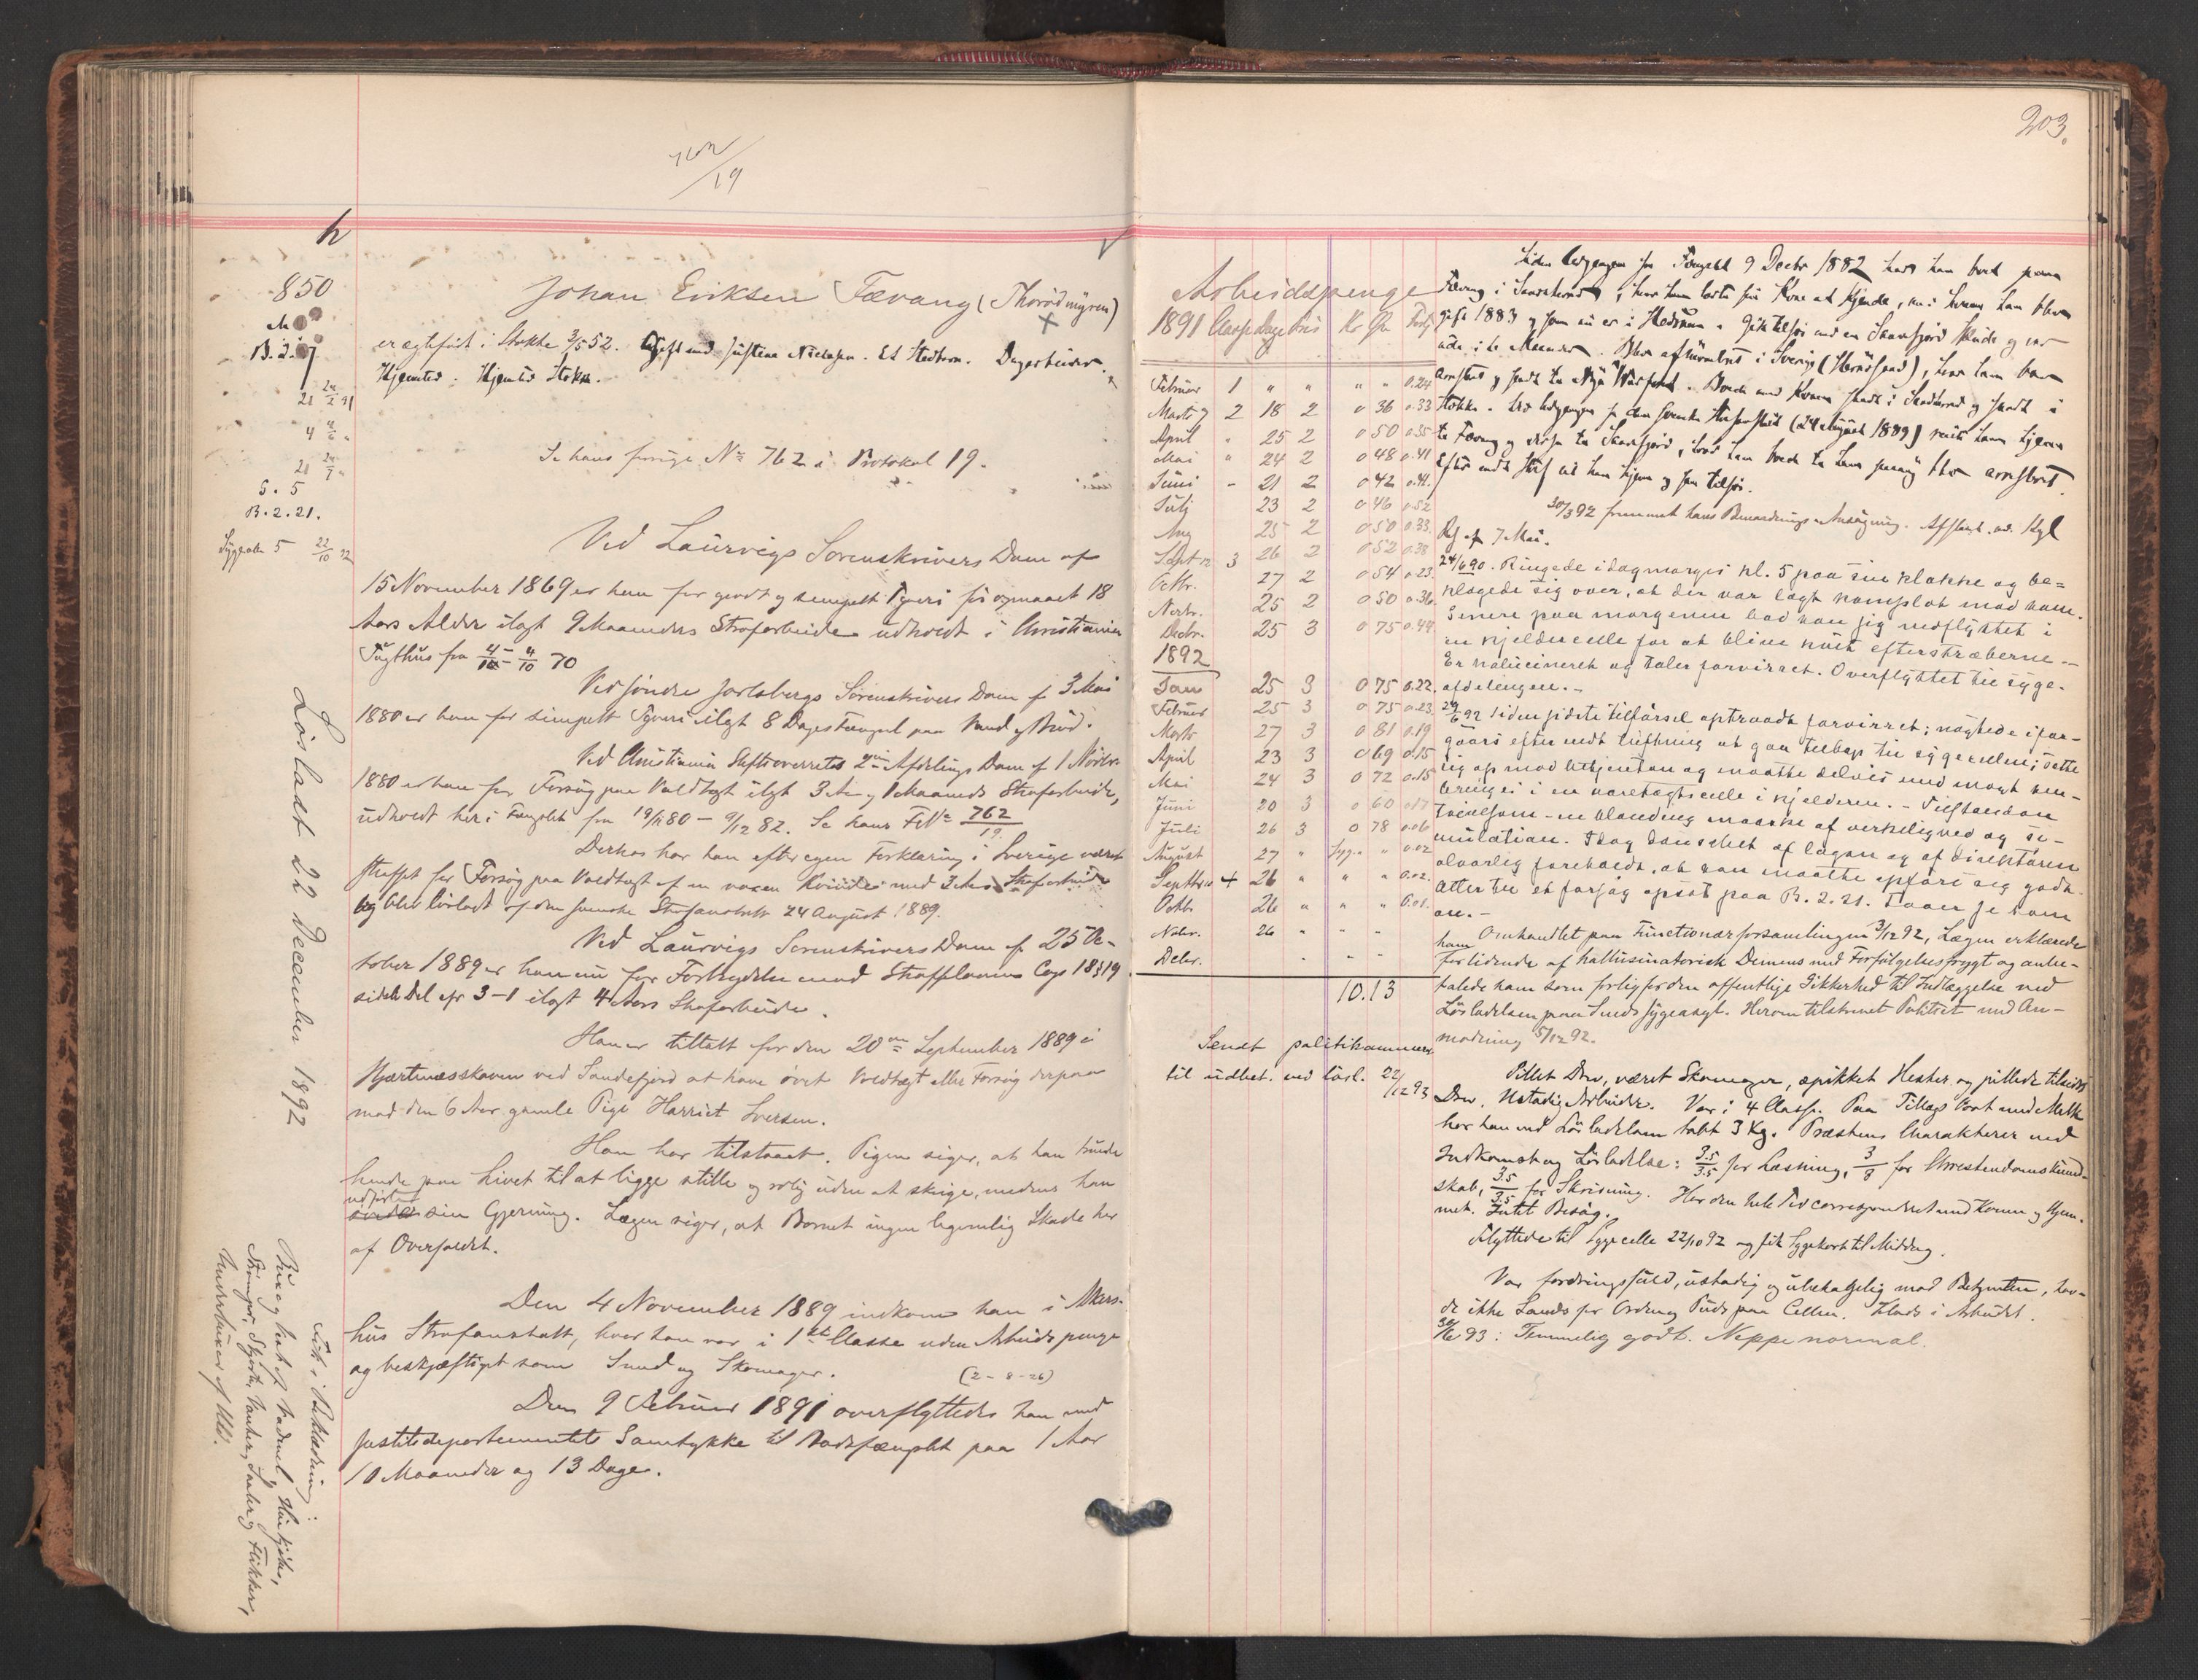 203.
762/19
h
850
B. 2. 21.
5. 5
Sygecelle 5 22/10 92
Løsladt 22 December 1892
Johan Eriksen Fævang (Thorødmyren)
er ægtefødt i Stokke 3/5 52. Gift med Justine Nielsen. Et Stedbarn. Dagarbeider.
Hjemsted: Stokke.
Se hans forrige No 762 i Protokol 19.
Ved Laurvigs Sorenskrivers Dom af
15 November 1869 er han for grovt og simpelt Tyveri før opnaaet 18
Aars Alder ilagt 9 Maaneders Strafarbeide udholdt i Christiania
Tugthus fra 4/1 - 4/10 70
Ved søndre Jarlsbergs Sorenskrivers Dom af 3 Mai
1880 er han for simpelt Tyveri ilagt 8 Dages Fængsel paa Vand og Brød.
Ved Christiania Stiftsoverrets 2den Afdelings Dom af 1 Novbr.
1880 er han for Forsøg paa Voldtægt ilagt 3 Aar og 1 Maaneds Strafarbeide,
udholdt her i Fængslet fra 19/11 80 - 9/12 82. Se hans F No 762/19.
Derhos har han efter egen Forklaring i Sverige været
straffet for Forsøg paa Voldtægt af en voxen Kvinde med 3 Aars Strafarbeide
og blev løsladt af den svenske Strafanstalt 24 August 1889.
Ved Laurvigs Sorenskrivers Dom af 25 Oc-
tober 1889 er han nu for Forbrydelse mod Straffelovens Cap 18 § 19
sidste Del cfr 3-1 ilagt 4 Aars Strafarbeide.
Han er tiltalt for den 20de September 1889 i
Hjertnæsskoven ved Sandefjord at have øvet Voldtægt eller Forsøg derpaa
mod den 6 Aar gamle Pige Harriet Iversen.
Han har tilstaaet. Pigen siger, at han truede
hende paa Livet til at ligge stille og rolig uden at skrige, medens han
udførte sin Gjerning. Lægen siger, at Barnet ingen legemlig Skade har
af Overfaldet.
Den 4 November 1889 indkom han i Akers-
hus Strafanstalt, hvor han var i 1ste Classe uden Arbeidspenge
og beskjæftiget som Smed og Skomager. (2-8-26)
Den 9 Februar 1891 overflyttedes han med
Justitsdepartementets Samtykke til Bodsfængslet paa 1 Aar
10 Maaneder og 13 Dage.
Fik i Beklædning:
Buxe og Vest af Vadmel, Halstørklæde,
Strømper, Skjorte, Vanter,
Underbuxer af Uld.
Arbeidspenge
1891 Classe Dage Pris Kr Øre
Februar 1 " " " " 0.24
Marts 7 2 18 2 0 36 0.33
April " 25 2 0 50 0.35
Mai " 24 2 0 48 0.41
Juni - 21 2 0 42 0.41
Juli 23 2 0 46 0.52
Aug 25 2 0 50 0.33
Sept 3 26 2 0 52 0.38
Octbr. 27 2 0 54 0.23
Novbr. 25 2 0 50 0.36
Decbr. 25 3 0 75 0.44
1892
Jan 25 3 0 75 0.22
Februar 25 3 0 75 0.23
Marts 27 3 0 81 0.19
April 23 3 0 69 0.15
Mai 24 3 0 72 0.15
Juni 20 3 0 60 0.17
Juli 26 3 0 78 0.06
August 27 " Syg. " " 0.02
Septbr 4 26 " " " 0.02
Octb. 26 " " " 0.01
Novbr. 26 " " "
Decbr. " " "
10.13
Sendt politikammeret
til udbet. ved løsl. 22/12 92
Siden Udgangen fra Fængslet 9 Decbr 1882 har han boet paa
Fævang i Sandeherred, hvor han lærte sin Kone at kjende, med hvem han blev
gift 1883 og som nu er i Hedrum. Gik tilsøs med en Sandefjord Skude og var
ude i to Maaneder. Blev afhentet i Sverige (Hernøsand), hvor han blev
arresteret og sendt til Nya Warfvet. Boede med Konen snart i Sandeherred og snart i
Stokke. Ved Udgangen fra den svenske Strafanstalt (24 August 1889) reiste han hjem
til Fævang og derfra til Sandefjord, hvor han boede til han paany blev arresteret.
Efter endt Straf vil han hjem og saa tilsøs.
30/3 92 fremmet hans Benaadnings-Ansøgning. Afslaaet ved Kgl
Res af 7 Mai.
24/6 90. Ringede idagmorges kl. 5 paa sin klokke og be=
klagede sig over, at der var lagt komplot mod ham.
Senere paa morgenen bad han sig nedflyttet i
en kjeldercelle for at blive kvit efterstræberne.-
Er halucineret og taler forvirret. Overflyttet til syge-
afdelingen.-
29/6 92 Siden sidste tilførsel optraadt forvirret; nægtede ifor-
gaars efter endt luftning at gaa tilbage til sygecellen; satte
sig op mod betjenten og maatte delvis med magt hen-
bringes i en varetægtscelle i kjelderen.- Tilstanden
tvivlsom - en blanding maaske af virkelighed og si-
mulation. Idag sandet af lægen og af direktøren
alvorlig foreholdt, at han maatte opføre sig godt.
Atter til et forsøg opsat paa B. 2. 21.
Omhandlet paa Functionærforsamlingen 3/12 92, Lægen erklærede
ham for lidende af hallusinatorisk Demens med Forfølgelsesfrygt og anbe-
falede ham som farlig for den offentlige Sikkerhed til Indlæggelse ved
Løsladelsen paa Sindssygeasyl. Herom tilskrevet Politiet med An-
modning 5/12 92.
Pillet Drev, været Skomager, spikket Hesker og pillede tilsidst
Drev. Ustadig Arbeider. Var i 4 Classe. Paa Tillægskost med Melk
har han ved Løsladelsen tabt 3 Kg. Præstens Charakterer ved
Indkomst og Løsladelse: 3.5/3.5 for Læsning, 3/3 for Christendomskund-
skab, 3.5/3.5 for Skrivning. Har den hele Tid correspondret med Konen og Hjem-
met. Intet Besøg.
Flyttede til Sygecelle 22/10 92 og fik Sygekost til Middag.
Var fordringsfuld, ustadig og ubehagelig mod Betjenten, hav-
de ikke Sands for Orden og Puds paa Cellen. Klods i Arbeidet.
30/6 93: Temmelig godt. Neppe normal.